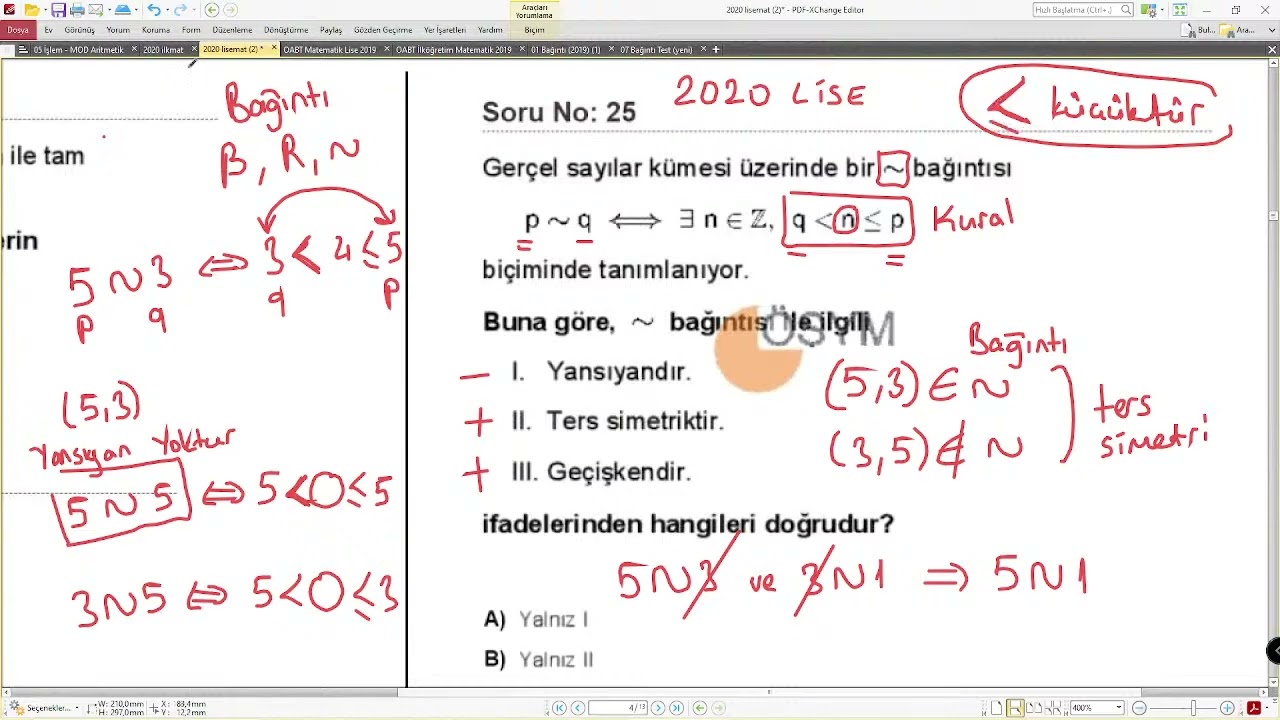 Araçları
Yorumlama
2020 lisemat (2)* - PDF-XChange Editor
Hızlı Başlatma (Ctrl+.)
Dosya Ev Görünüş Yorum Koruma Form Düzenleme Dönüştürme Paylaş Gözden Geçirme Yer İşaretleri Yardım Biçim Bul... Ara...
05 İşlem - MOD Aritmetik 2020 ilkmat 2020 lisemat (2) * ÖABT Matematik Lise 2019 ÖABT İlköğretim Matematik 2019 01 Bağıntı (2019) (1) 07 Bağıntı Test (yeni)
ile tam
erin
Bağıntı
β, R, ~
5 ~ 3 ⇔ 3 < 4 ≤ 5
p q q p
(5,3)
Yansıyan Yoktur
5 ~ 5 ⇔ 5 < ◯ ≤ 5
3 ~ 5 ⇔ 5 < ◯ ≤ 3
Soru No: 25 2020 LİSE < küçüktür
Gerçel sayılar kümesi üzerinde bir ~ bağıntısı
p ~ q ⟺ ∃ n ∈ ℤ, q < n ≤ p Kural
biçiminde tanımlanıyor.
Buna göre, ~ bağıntısı ile ilgili
ÖSYM
− I. Yansıyandır.
+ II. Ters simetriktir.
+ III. Geçişkendir.
Bağıntı
(5,3) ∈ ~
(3,5) ∉ ~
ters
simetri
ifadelerinden hangileri doğrudur?
5 ~ 3 ve 3 ~ 1 ⇒ 5 ~ 1
A) Yalnız I
B) Yalnız II
Seçenekler... W: 210,0mm X: 83,4mm 4/13 400%
H: 297,0mm Y: 12,2mm